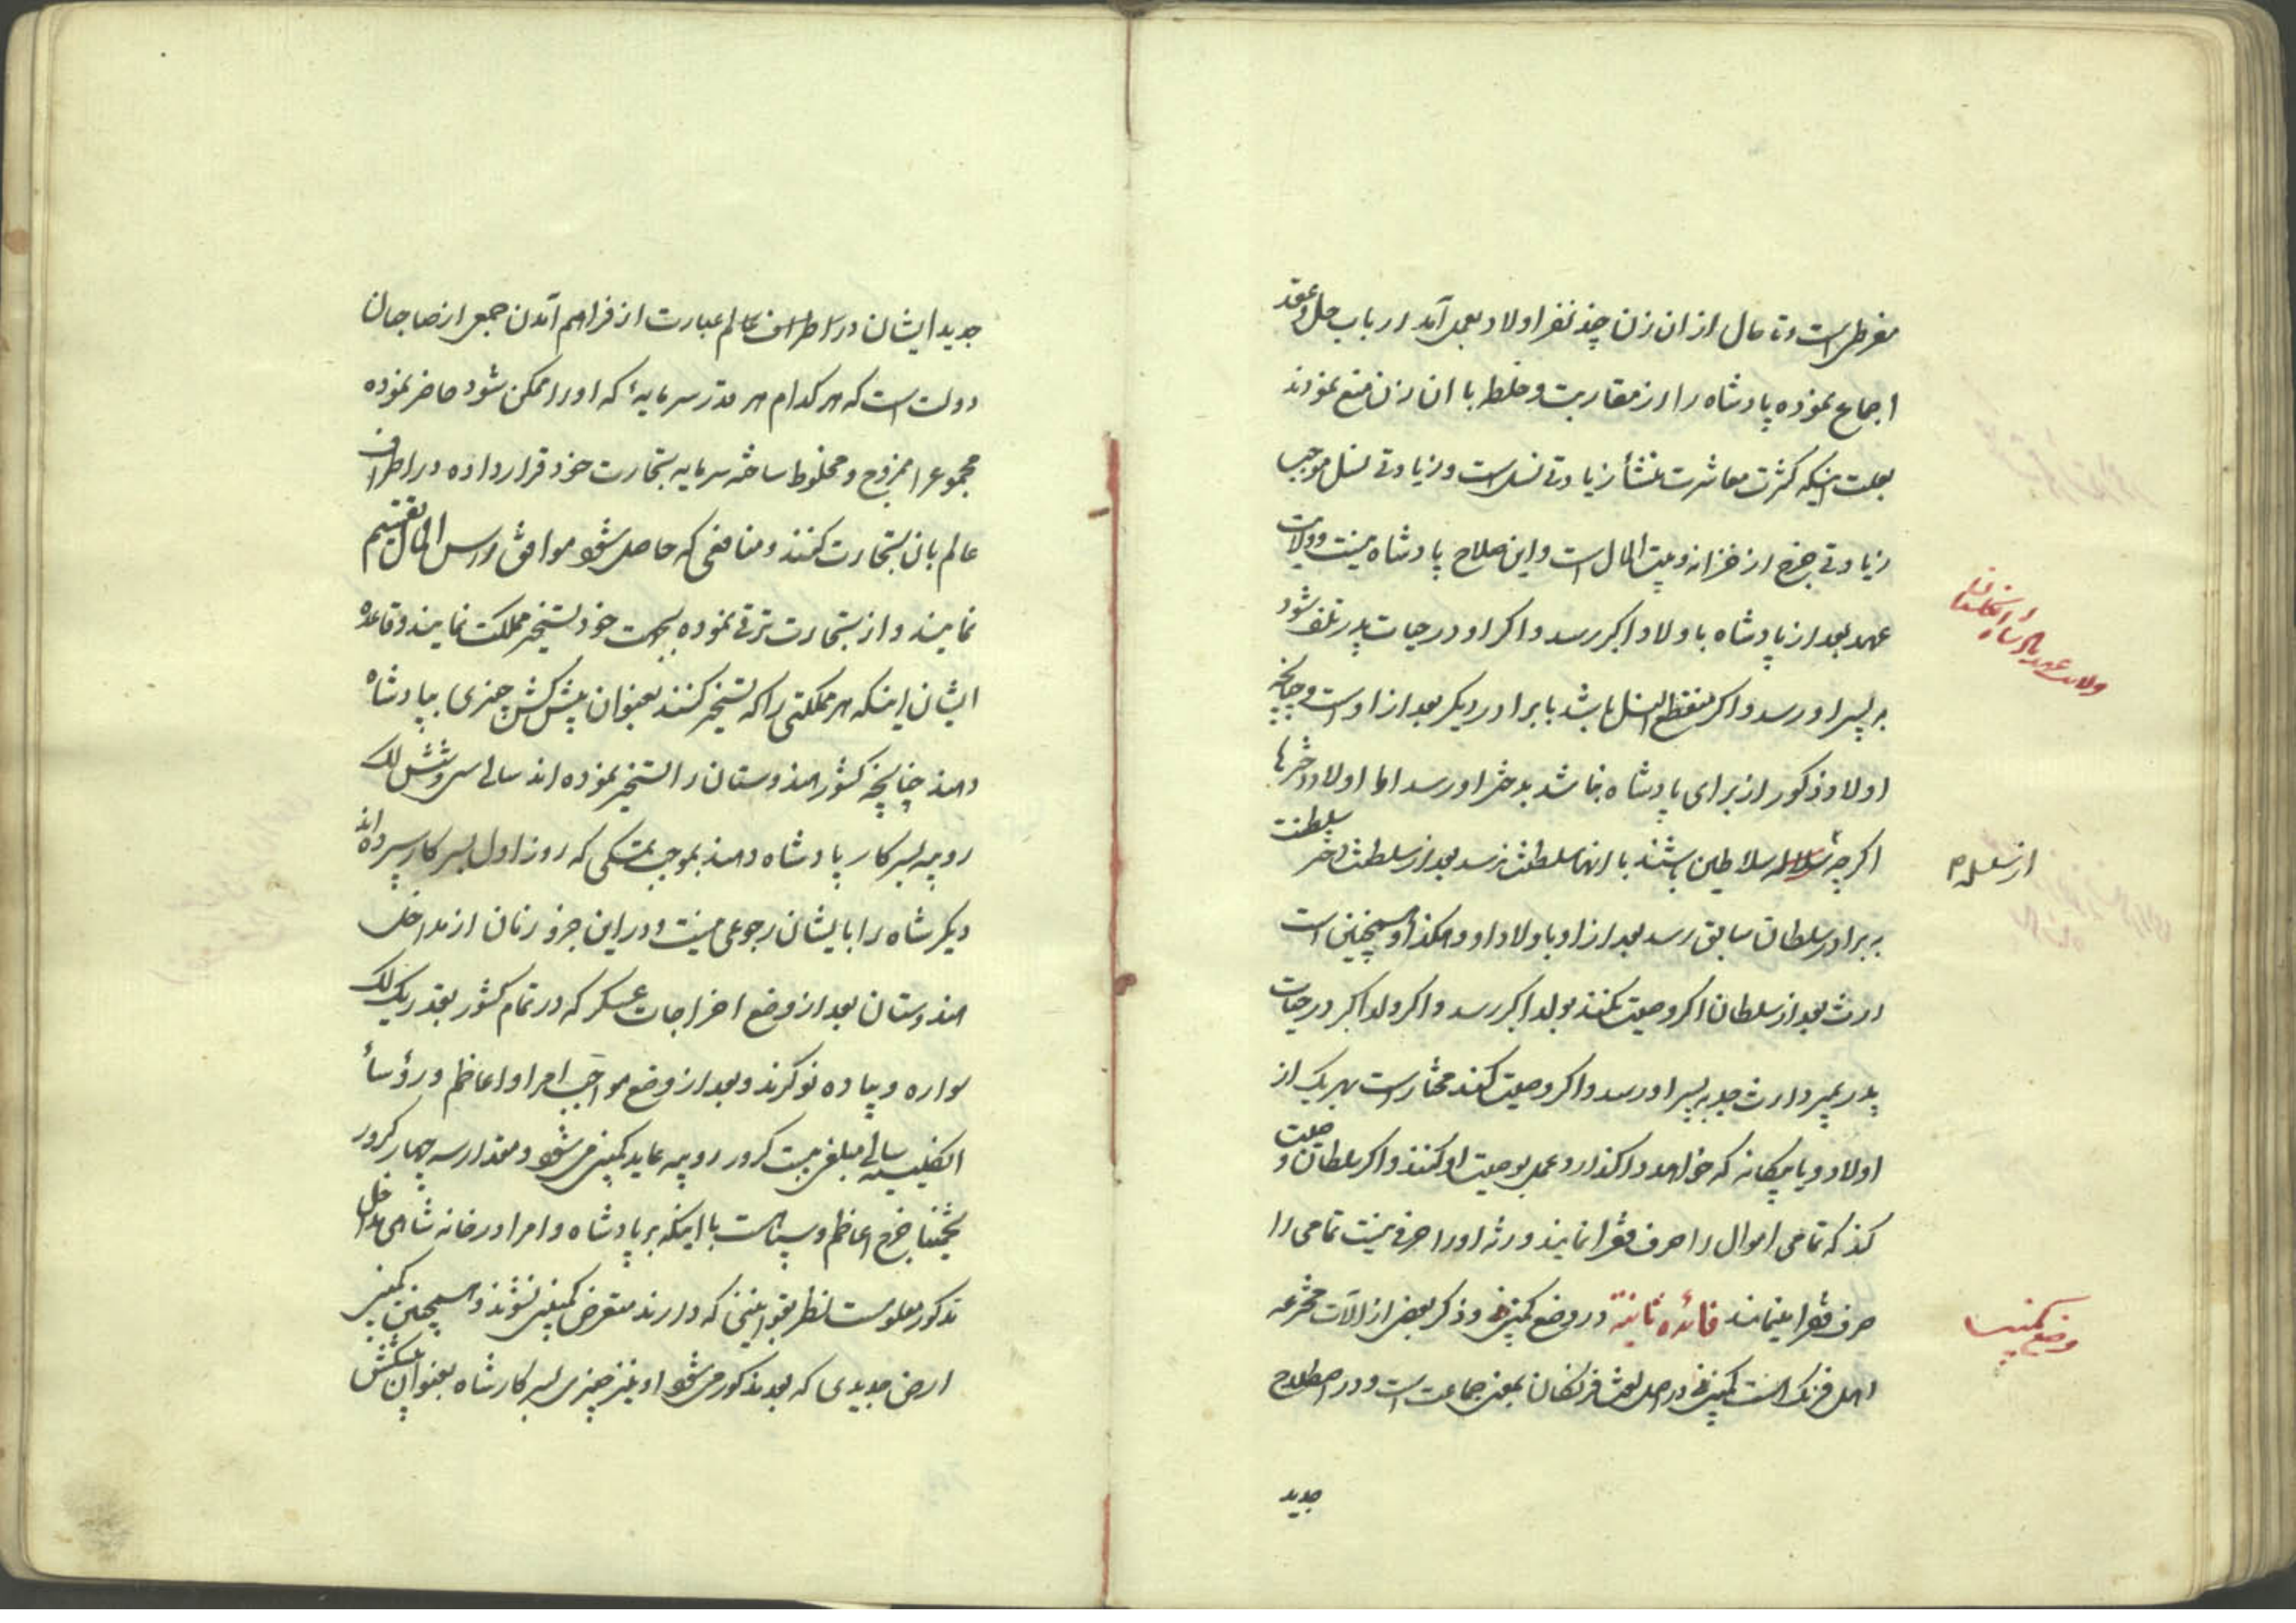 مفرطی است و تا حال از ان زن چند نفر اولاد بعمل آمد ارباب حل و عقد
اجماع نموده پادشاه را از مقاربت و خلطه با ان زن منع نمودند
بعلت اینکه کثرت معاشرت منشأ زیادتی نسل است و زیادتی نسل موجب
زیادتی خرج از خزانه و بیت المال است و این صلاح پادشاه نیست و ولایت
عهد بعد از پادشاه باولاد اکبر رسد و اکر او در حیات پدر تلف شود
به پسر او رسد و اکر منقطع النسل باشد با برادر دیکر بعد از او است و چنانچه
اولاد ذکور از برای پادشاه نباشد بدختر او رسد اما اولاد دخترها
اکرچه سلاله سلاطین باشند با انها سلطنت نرسد بعد از سلطنت دختر سلطنت
به برادر سلطان سابق رسد بعد از او باولاد او و هکذا و همچنین است
ارث بعد از سلطان اکر وصیت نکنند بولد اکبر رسد و اکر ولد اکبر در حیات
پدر بمیرد ارث جد به پسر او رسد و اکر وصیت کند مختار است بهر یک از
اولاد و یا بیکانه که خواهد واکذارد و عمل بوصیت او کنند و اکر سلطان وصیت
کند که تمامی اموال را صرف فقرا نمایند ورثه او را حرفی نیست تمامی را
صرف فقرا مینمایند فائده ثانیة در وضع کمپنی و ذکر بعض از آلات مخترعه
اهل فرنک است کمپنی در اصل لغت فرنکان بمعنی جماعت است و در اصطلاح
جدید
ولایت عهد پادشاه انکلستان
از سلسله
وضع کمپنی
جدید ایشان در اطراف عالم عبارت از فراهم آمدن جمعی از صاحبان
دولت است که هر کدام هر قدر سرمایهٔ که او را ممکن شود حاضر نموده
مجموع را ممزوج و مخلوط ساخته سرمایه تجارت خود قرار داده در اطراف
عالم بان تجارت کنند و منافعی که حاصل شود موافق راس المال تقسیم
نمایند و از تجارت ترقی نموده بجهت خود تسخیر مملکت نمایند و قاعده
ایشان اینکه هر مملکتی را که تسخیر کنند بعنوان پیش کش چیزی بپادشاه
دهند چنانچه کشور هندوستان را تسخیر نموده اند سالی سی و شش لک
روپیه بسرکار پادشاه دهند بموجب تمسکی که روز اول بسرکار سپرده اند
دیکر شاه را با ایشان رجوعی نیست و در این جزو زمان از مداخل
هندوستان بعد از وضع اخراجات عسکر که در تمام کشور بقدر یک لک
سواره و پیاده نوکرند و بعد از وضع مواجب امرا و اعاظم و رؤسأ
انکلیسیه سالی مبلغ بیست کرور روپیه عاید کمپنی می شود و مقدار سه چهار کرور
تخمینا خرج اعاظم و سپاه است با اینکه بر پادشاه و امرا در خانه شاهی مداخل
مذکور معلوم است نظر بقوانینی که دارند متعرض کمپنی نشوند و همچنین کمپنی
ارض جدیدی که بعد مذکور می شود او نیز چیزی بسرکار شاه بعنوان پیشکش